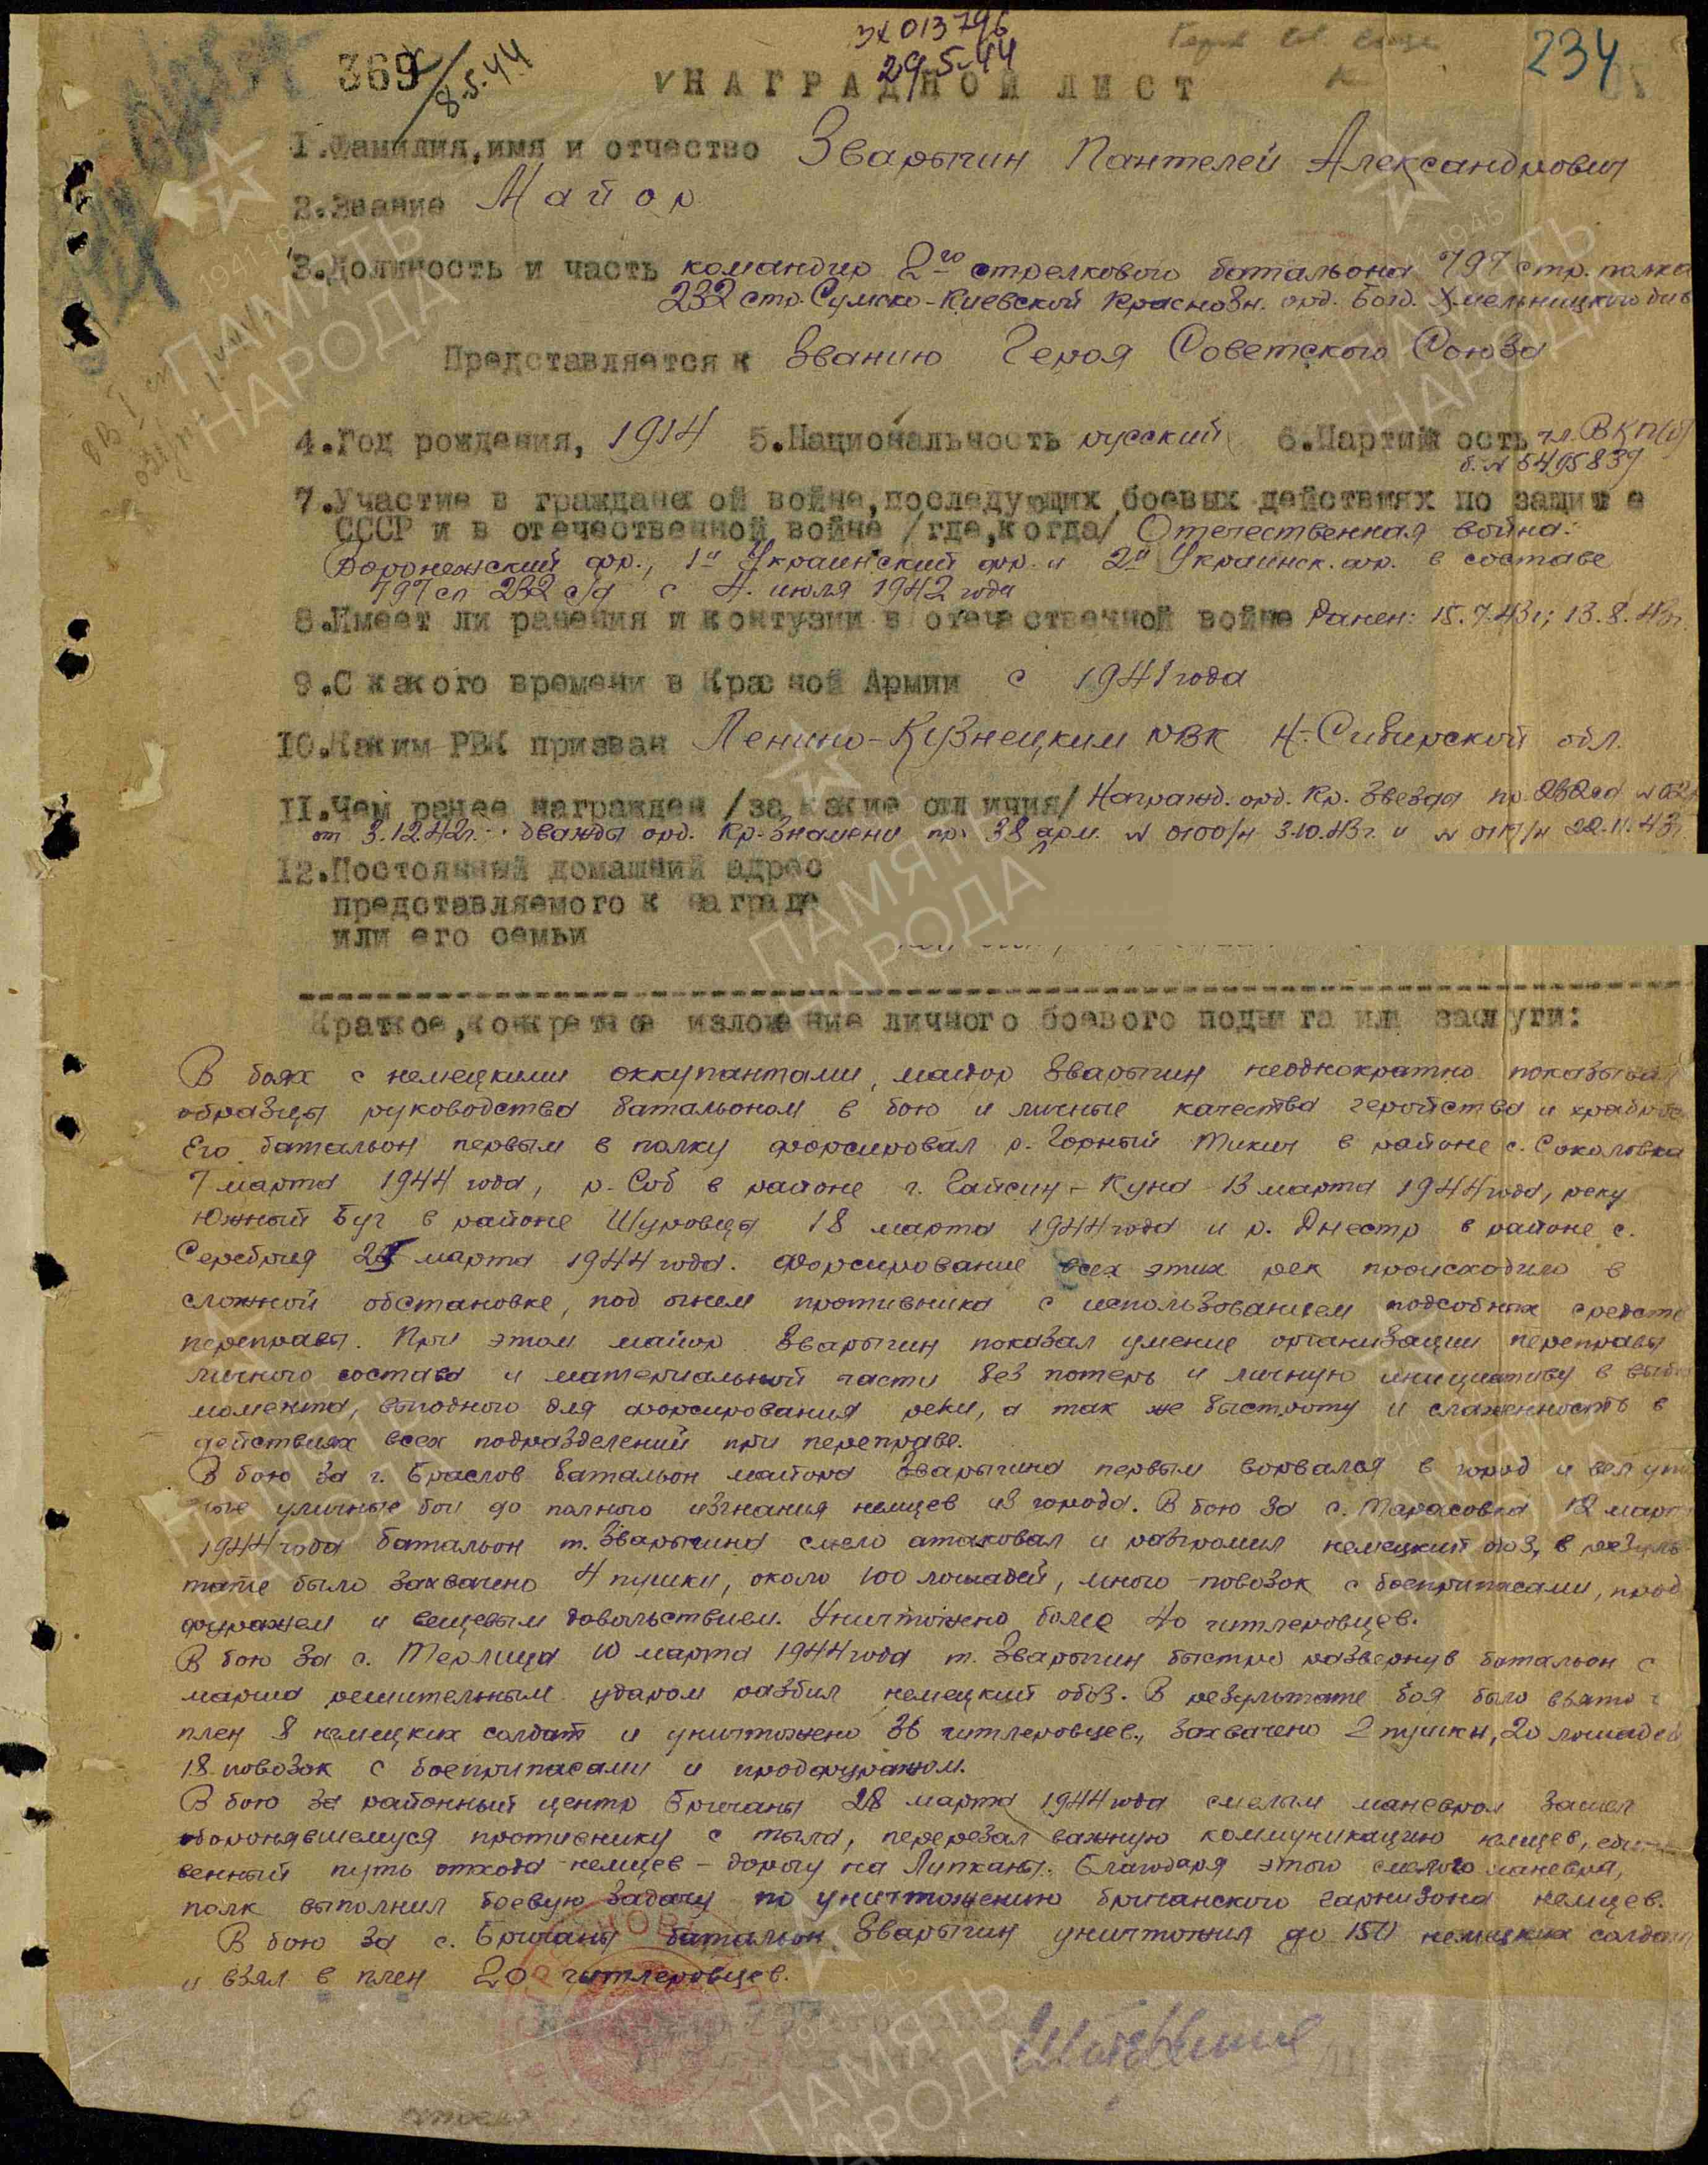 зх 013796
369 8.5.44
29.5.44
234
НАГРАДНОЙ ЛИСТ
1.Фамилия,имя и отчество Зварыгин Пантелей Александрович
2.Звание Майор
3.Должность и часть командир 2го стрелкового батальона 797 стр. полка
232 стр. Сумско-Киевской Краснозн. орд. Богд. Хмельницкого див
Представляется к Званию Героя Советского Союза
4.Год рождения, 1914 5.Национальность русский 6.Партийность чл. ВКП(б)
б. № 5495839
7.Участие в гражданской войне,последующих боевых действиях по защите
СССР и в отечественной войне /где,когда/ Отечественная война:
Воронежский фр., 1й Украинский фр. и 2й Украинск. фр. в составе
797 сп 232 с/д с 4. июля 1942 года
8.Имеет ли ранения и контузии в отечественной войне Ранен: 15.7.43г; 13.8.43г.
9.С какого времени в Красной Армии с 1941 года
10.Каким РВК призван Ленино-Кузнецким РВК Н-Сибирской обл.
11.Чем ранее награжден /за какие отличия/ Награжд. орд. Кр. Звезда пр. 232сд
от 3.12.42г. дважды орд. Кр. Знамени пр. 38 арм. № 0100/н 3.10.43г. и № 0117/н 22.11.43г.
12.Постоянный домашний адрес
представляемого к награде
или его семьи
Краткое,конкретное изложение личного боевого подвига или заслуги:
В боях с немецкими оккупантами, майор Зварыгин неоднократно показывал
образцы руководства батальоном в бою и личные качества геройства и
Его батальон первым в полку форсировал р. Горный Тикич в районе с. Соколовка
7 марта 1944 года, р. Соб в районе г. Гайсин - Куна 13 марта 1944 года, реку
Южный Буг в районе Шуровцы 18 марта 1944 года и р. Днестр в районе с.
Серебрия марта 1944 года. Форсирование всех этих рек происходило в
сложной обстановке, под огнем противника с использованием подсобных средств
переправы. При этом майор Зварыгин показал умение организации переправы
личного состава и материальной части без потерь и личную инициативу в
момента, выгодного для форсирования реки, а так же быстроту и слаженность в
действиях всех подразделений при переправе.
В бою за г. Браслов батальон майора Зварыгина первым ворвался в город и вел
уличные бои до полного изгнания немцев из города. В бою за с. Тарасовка 12
1944 года батальон т. Зварыгина смело атаковал и разгромил немецкий обоз, в резуль-
тате было захвачено 4 пушки, около 100 лошадей, много повозок с боеприпасами, прод
фуражем и вещевым довольствием. Уничтожено более 40 гитлеровцев.
В бою за с. Терлица 10 марта 1944 года т. Зварыгин быстро развернув батальон с
марша решительным ударом разбил немецкий обоз. В результате боя было взято в
плен 8 немецких солдат и уничтожено 36 гитлеровцев, захвачено 2 пушки, 20 лошадей
18 повозок с боеприпасами и продфуражом.
В бою за районный центр Бричаны 28 марта 1944 года смелым маневром зашел
оборонявшемуся противнику с тыла, перерезал важную коммуникацию немцев, единст-
венный путь отхода немцев - дорогу на Липканы. Благодаря этого смелого маневра,
полк выполнил боевую задачу по уничтожению бричанского гарнизона немцев.
В бою за с. Бричаны батальон Зварыгин уничтожил до 150 немецких солдат
и взял в плен 20 гитлеровцев.
ПАМЯТЬ
НАРОДА
1941-1945